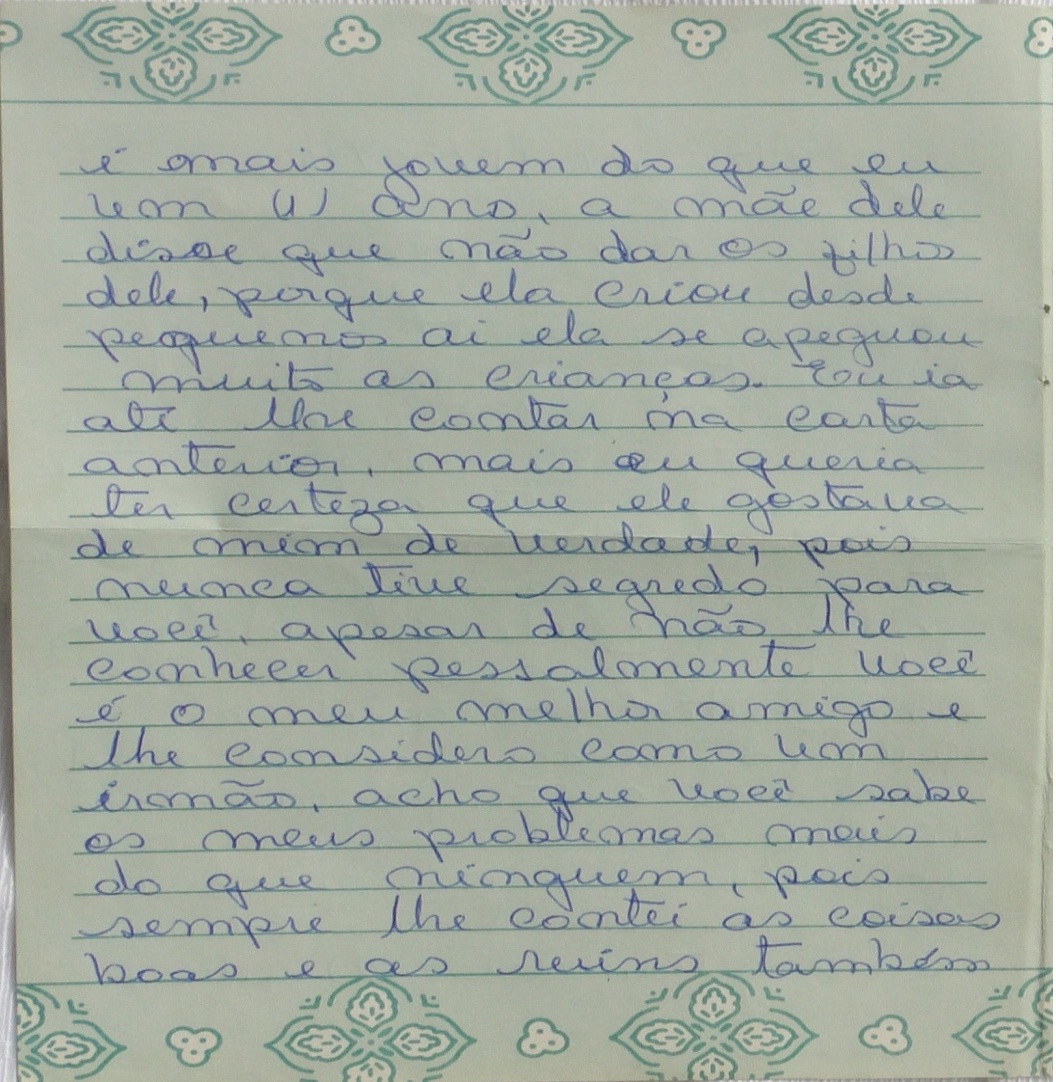 é mais jovem do que eu
um (1) ano, a mãe dele
disse que não dar os filhos
dele, porque ela criou desde
pequenos ai ela se apeguou
muito as crianças. Eou ia
até lhe contar na carta
anterior, mais eu queria
ter certeza que ele gostava
de mim de verdade, pois
nunca tive segredo para
você, apesar de não lhe
conhecer pessalmente você
é o meu melhor amigo e
lhe considero como um
irmão, acho que você sabe
os meus problemas mais
do que ninguem, pois
sempre lhe contei as coisas
boas e as ruins também